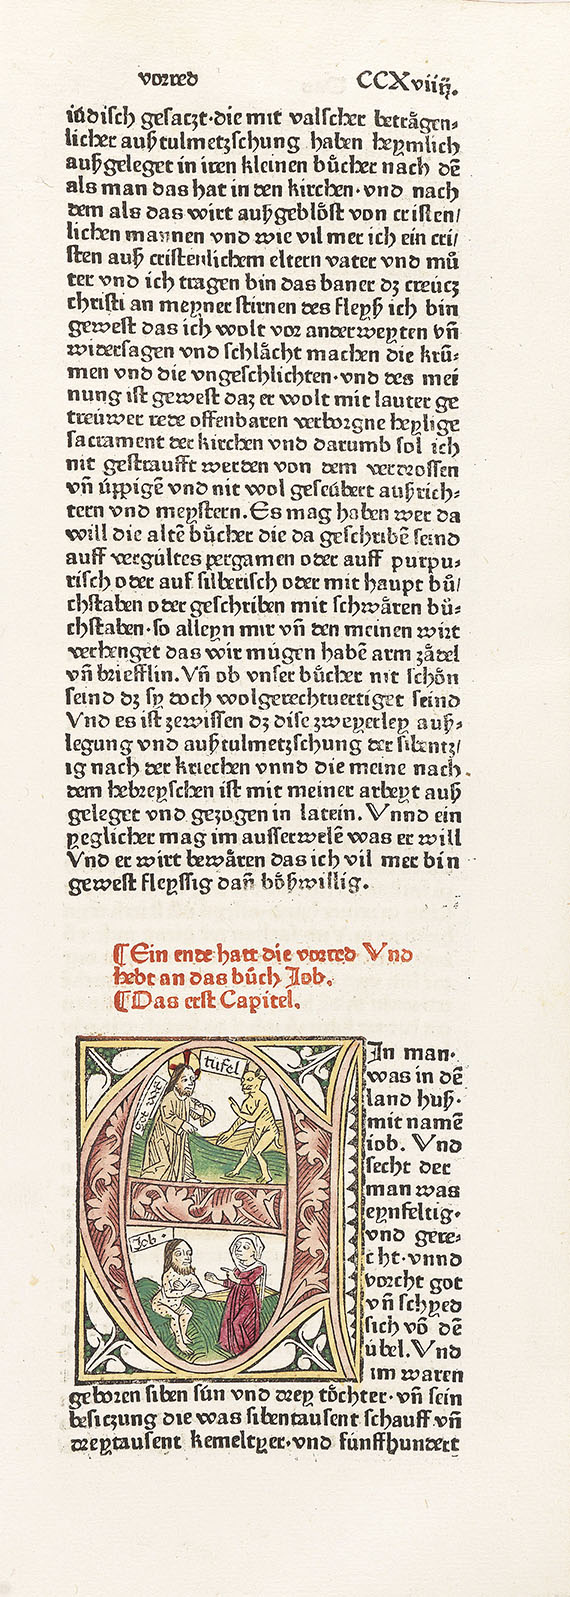 vorred CCXviiij.
iüdisch gesatzt·die mit valscher betrågen⸗
licher außtulmetzschung haben heymlich
außgeleget in iren kleinen bůcher nach dē
als man das hat in den kirchen·vnd nach
dem als das wirt außgeblößt von cristen/
lichen mannen vnd wie vil mer ich ein cri/
sten auß cristenlichem eltern vater vnd mů
ter vnd ich tragen bin das baner dz creücz
christi an meyner stirnen des fleyß ich bin
gewest das ich wolt vor anderweyten vñ
widersagen vnd schlächt machen die krū⸗
men vnd die vngeschlichten·vnd des mei
nung ist gewest daz er wolt mit lauter ge
treüwer rede offenbaren verborgne heylige
sacrament der kirchen vnd darumb sol ich
nit gestraufft werden von dem verdrossen
vñ üppigē vnd nit wol geseübert außrich⸗
tern vnd meystern. Es mag haben wer da
will die altē bůcher die da geschribē seind
auff vergültes pergamen oder auff purpu⸗
risch oder auf silberisch oder mit haupt bů/
chstaben oder geschriben mit schwären bů⸗
chstaben·so alleyn mir vñ den meinen wirt
verhenget das wir mügen habē arm zådel
vñ briefflin. Vñ ob vnser bůcher nit schön
seind dz sy doch wolgerechtuertiget seind
Vnd es ist zewissen dz dise zweyerley auß⸗
legung vnd außtulmetzschung der sibentz/
ig nach der kriechen vnnd die meine nach
dem hebreyschen ist mit meiner arbeyt auß
geleget vnd gezogen in latein. Vnnd ein
yeglicher mag im ausserwelē was er will
Vnd er wirt bewåren das ich vil mer bin
gewest fleyssig dañ bößwillig.
¶Ein ende hatt die vorred Vnd
hebt an das bůch Job.
¶Das erst Capitel.
tüfel
Got
Job·
In man·
was in dē
land huß·
mit namē
iob. Vnd
secht der
man was
eynfeltig·
vnd gere⸗
cht·vnnd
vorcht got
vñ schyed
sich vō dē
übel. Vnd
im waren
geboren siben sün vnd drey töchter·vñ sein
besiczung die was sibentausent schauff vñ
dreytausent kemeltyer·vnd fünffhundert